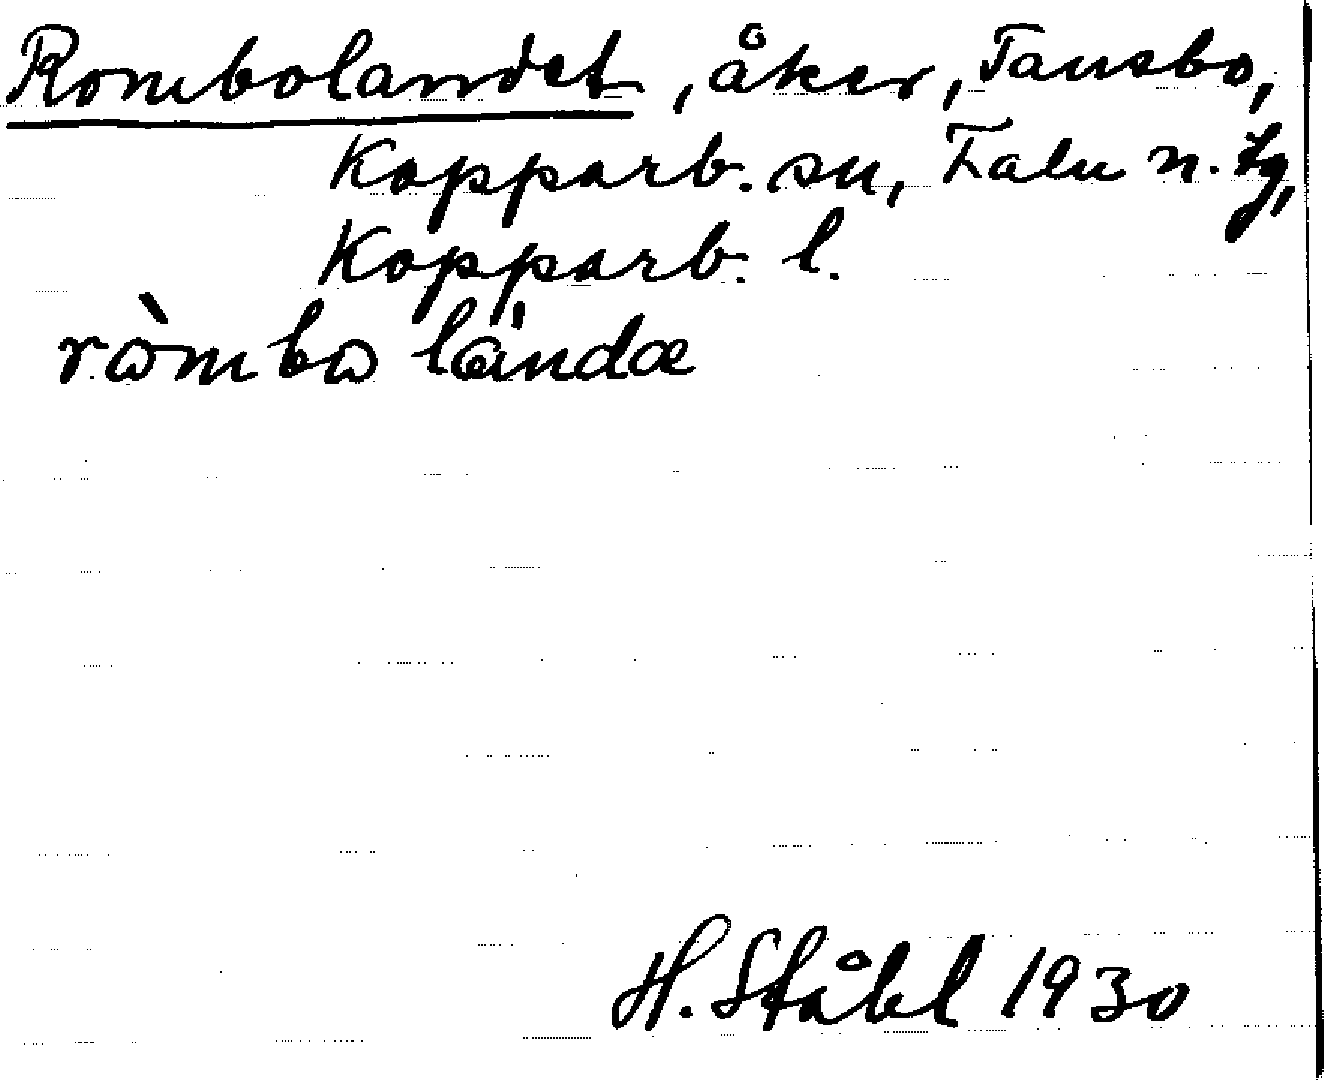 Rombolandet, åker, Tansbo,
Kopparb. sn, Falu n. tg,
Kopparb. l.
ròmbω lándæ
H. Ståhl 1930